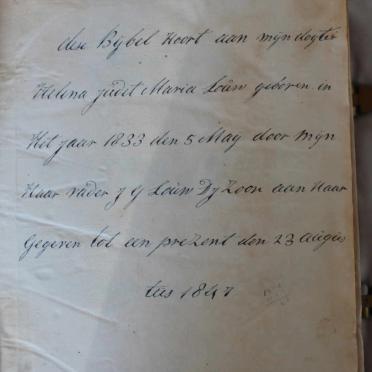 dese Bijbel Hoort aan mijn dogter
Helena judit Maria Louw geboren in
Het jaar 1833 den 5 May door mijn
Haar vader J G Louw DyZoon aan Haar
Gegeven tot een prezent den 23 augus
tus 1847